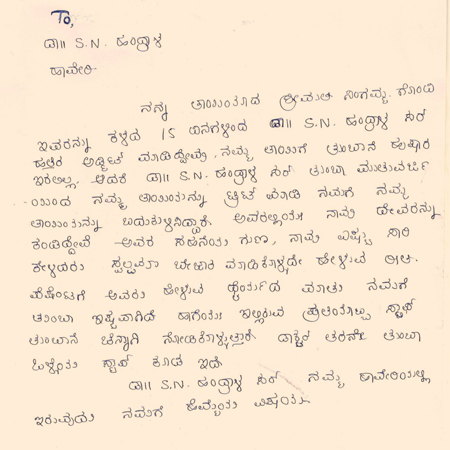 To,
ಡಾ|| S.N. ಹಂದ್ರಾಳ
ಹಾವೇರಿ
ನನ್ನ ತಾಯಿಯಾದ ಶ್ರೀಮತಿ ನಿಂಗಮ್ಮ ಗೊಂದಿ
ಇವರನ್ನು ಕಳೆದ 15 ದಿನಗಳಿಂದ ಡಾ|| S.N. ಹಂದ್ರಾಳ ಸರ್
ಹತ್ತಿರ ಅಡ್ಮಿಟ್ ಮಾಡಿದ್ದೇವು, ನಮ್ಮ ತಾಯಿಗೆ ತುಂಬಾನೆ ಹುಷಾರ
ಇರಲಿಲ್ಲ. ಆದರೆ ಡಾ|| S.N. ಹಂದ್ರಾಳ ಸರ್ ತುಂಬಾ ಮುತುವರ್ಜಿ
-ಯಿಂದ ನಮ್ಮ ತಾಯಿಯನ್ನು ಟ್ರೀಟ ಮಾಡಿ ನಮಗೆ ನಮ್ಮ
ತಾಯಿಯನ್ನು ಬದುಕುಳಿಸಿದ್ದಾರೆ. ಅವರಲ್ಲಿಯೂ ನಾವು ದೇವರನ್ನು
ಕಂಡಿದ್ದೇವೆ ಅವರ ಸಹನೆಯ ಗುಣ, ನಾವು ಎಷ್ಟು ಸಾರಿ
ಕೇಳಿದರು ಸ್ವಲ್ಪವೂ ಬೇಜಾರ ಮಾಡಿಕೊಳ್ಳದೇ ಹೇಳುವ ರೀತಿ.
ಪೆಷೆಂಟಗೆ ಅವರು ಹೇಳುವ ಧೈರ್ಯದ ಮಾತು ನಮಗೆ
ತುಂಬಾ ಇಷ್ಟವಾಗಿದೆ ಹಾಗೆಯೇ ಇಲ್ಲಿರುವ ಪ್ರತಿಯೊಬ್ಬ ಸ್ಟಾಫ್
ತುಂಬಾನೆ ಚೆನ್ನಾಗಿ ನೋಡಿಕೊಳ್ಳುತ್ತಾರೆ. ಡಾಕ್ಟರ ತರನೇ ತುಂಬಾ
ಒಳ್ಳೆಯ ಸ್ಟಾಫ್ ಕೂಡ ಇದೆ
ಡಾ|| S.N. ಹಂದ್ರಾಳ ಸರ್ ನಮ್ಮ ಹಾವೇರಿಯಲ್ಲಿ
ಇರುವುದು ನಮಗೆ ಹೆಮ್ಮೆಯ ವಿಷಯ